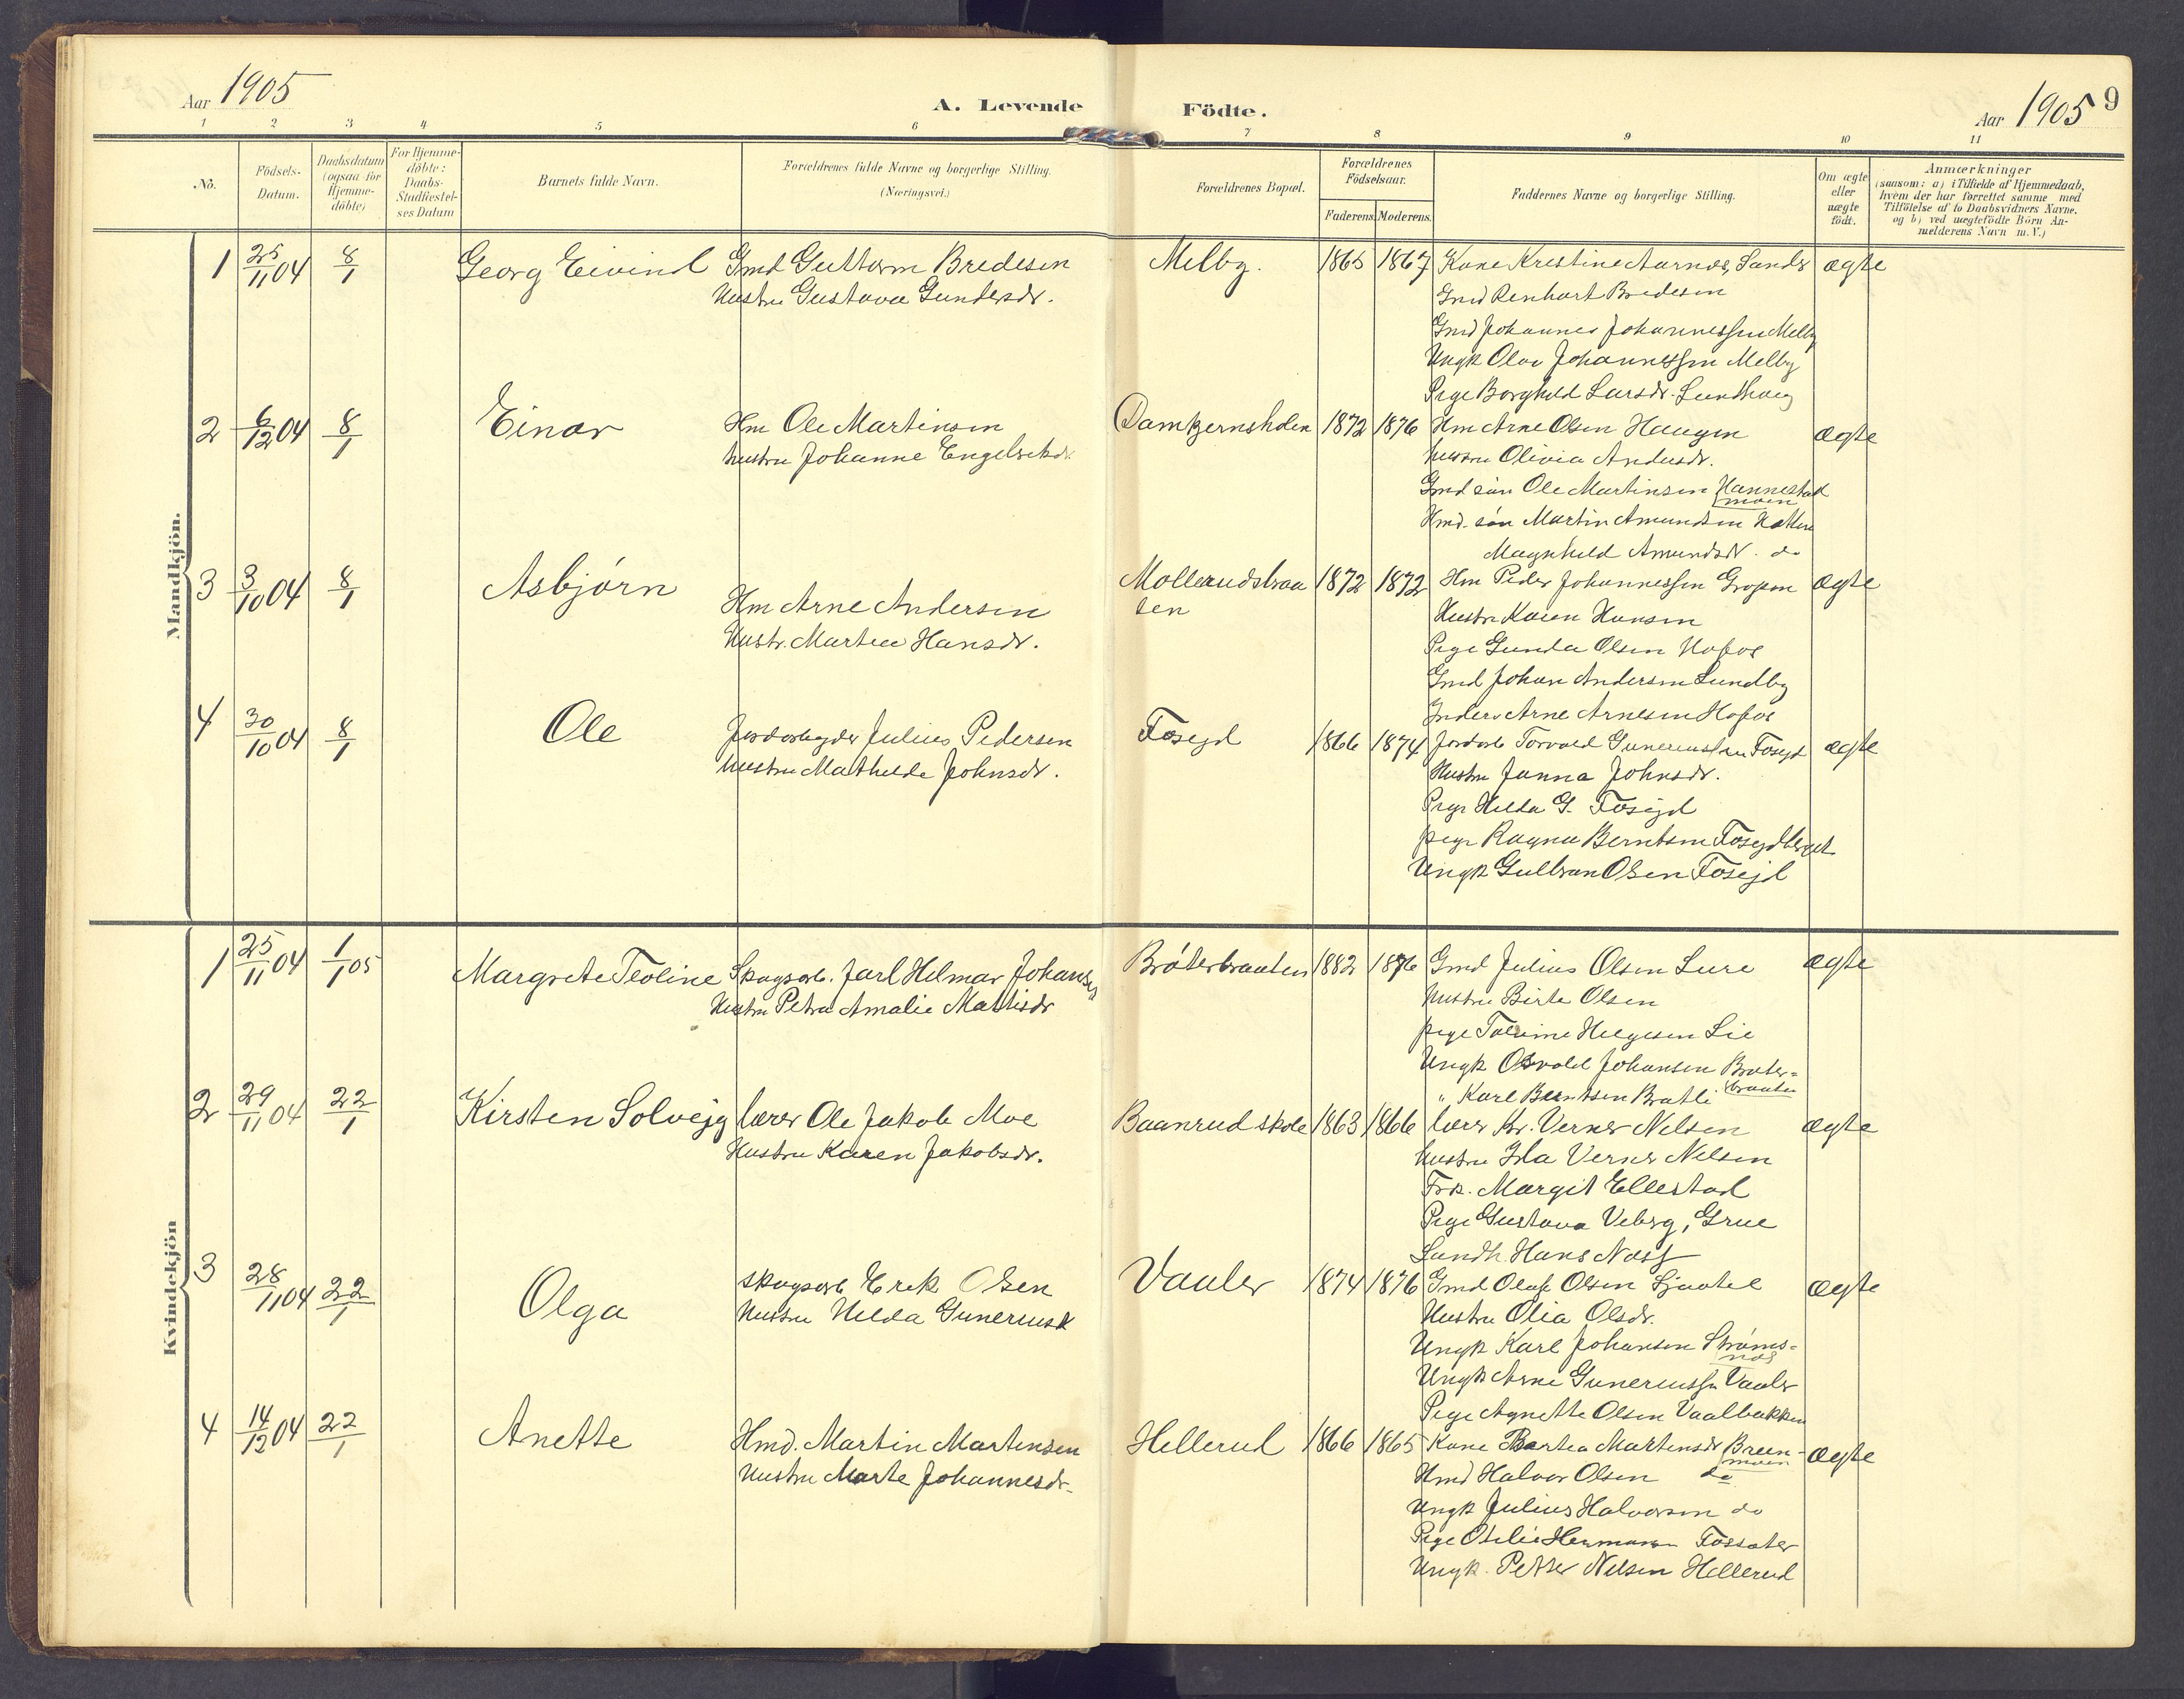 Aar 1905
A. Levende Födte.
Aar 1905 9
1 2 3 4 5 6 7 8 9 10 11
No.
Födsels-Datum.
Daabsdatum (ogsaa for Hjemme-döbte)
For Hjemme-döbte: Daabs-Stadfæstel-ses Datum
Barnets fulde Navn.
Forældrenes fulde Navne og borgerlige Stilling. (Næringsvei.)
Forældrenes Bopæl.
Forældrenes Födselsaar.
Faderens. Moderens.
Faddernes Navne og borgerlige Stilling.
Om ægte eller uægte födt.
Anmærkninger
(saasom: a) i Tilfælde af Hjemmedaab, hvem der har forrettet samme med Tilföielse af to Daabsvidners Navne. og b) ved uægtefödte Börn An-melderens Navn m. V.)
Mandkjön.
1 25/11 04 8/1 Georg Eivind Gmd Guttorm Bredesen Melby. 1865 1867 Kone Kristine Aarnæs, Sander ægte
Hustru Gustava Gundersdr. Gmd Renhart Bredesen
Gmd Johannes Johannessen Melby
Ungk Olov Johannessen Melby
Pige Borghild Larsdr. Sundhaug
2 6/12 04 8/1 Einar Hm Ole Martinsen 1872 1876 Hm Arne Olsen Haugen ægte
hustru Johanne Engebretsdr. hustru Olivia Andersdr.
Gmd søn Ole Martinsen Hannestad
moen
Hmd. søn Martin Amundsen
Magnhild Amundsdr. do
3 3/10 04 8/1 Asbjørn Mollerudsbraa 1872 1872 Hm Peder Johannessen ægte
Hm Arne Andersen ten Hustru Karen Hansen
Hustr. Martea Hansdr. Pige Gunda Olsen Hofos
Gmd Johan Andersen Lundby
Inders Arne Arnesen Hofos
4 30/10 04 8/1 Ole Jordarbeyder Julius Pedersen Foseyd 1866 1874 Jordarb Torvald Gunereussen Foseyd ægte
hustru Mathilde Johnsdr. Hustru Janna Johnsdr.
Pige Hilda G. Foseyd
pige Ragna Berntsen Foseydberget
Ungk Gulbran Olsen Foseyd
Kvindekjön
1 25/11 04 1/1 05 Margrete Teoline Skogsarb. Jarl Helmar Johansen Brøterbraaten 1882 1876 Gmd Julius Olsen Lure ægte
Hustru Petra Amalie Mattisdr Hustru Birte Olsen
pige Toleine Helgesen Lie
Ungk Osvald Johansen Brøter=
braaten
" Karl Berntsen Bratli
2 29/11 04 22/1 Kirsten Solvejg lærer Ole Jakob Moe Baanrud skole 1863 1866 lærer Kr. Verner Nelsen ægte
Hustru Karen Jakobsdr. hustru Ida Verner Nelsen
Frk. Margit Ellestad
Pige Gustava Viberg, Grue
Landh. Hans Næss
3 28/11 04 22/1 Olga skogsarb Erik Olsen Vaaler 1874 1876 Gmd Olaf Olsen Sjaatil ægte
Hustru Hilda Gunereusd Hustru Olia Olsdr.
Ungk Karl Johansen Strøms=
næs
Ungk Arne Gunereussen Vaaler
Pige Agnette Olsen Vaalbakken
4 14/12 04 22/1 Anette Hmd. Martin Martinsen Hellerud 1866 1865 Kone Bertea Martinsdr Breen-
moen ægte
Hustru Marte Johannesdr. Hmd Halvor Olsen do
Ungk Julius Halvorsen do
Pige Otilie Hermansen Fossæter
Ungk. Petter Nilsen Hellerud